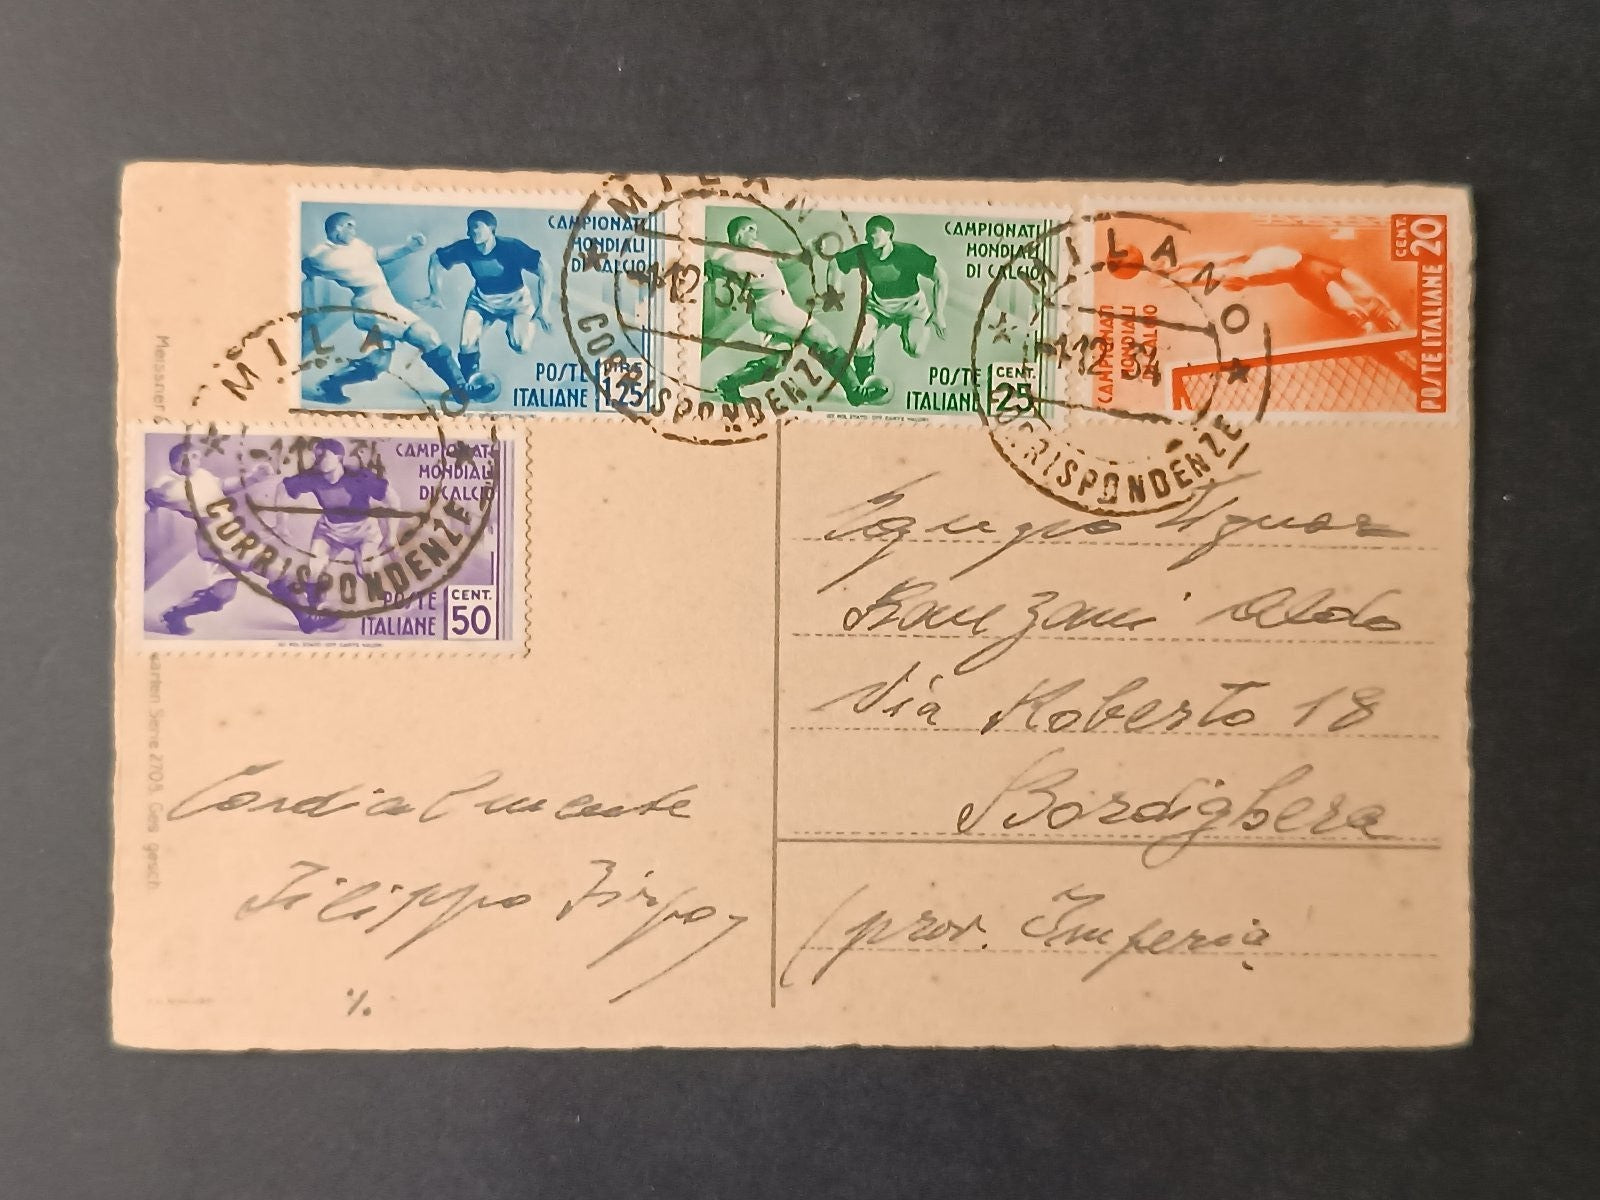 CAMPIONATI
MONDIALI
DI CALCIO
POSTE
ITALIANE
LIRE
1,25
CAMPIONATI
MONDIALI
DI CALCIO
POSTE
ITALIANE
CENT.
25
CAMPIONATI
MONDIALI
DI CALCIO
CENT. 20
POSTE ITALIANE
CAMPIONATI
MONDIALI
DI CALCIO
POSTE
ITALIANE
CENT.
50
MILANO
-1.12.34
CORRISPONDENZE
MILANO
-1.12.34
CORRISPONDENZE
MILANO
-1.12.34
CORRISPONDENZE
Messner
arten Serie 2705. Ges. gesch.
Cordialmente
Filippo
%.
Signor
Aldo
Via Roberto 18
Bordighera
(prov. Imperia